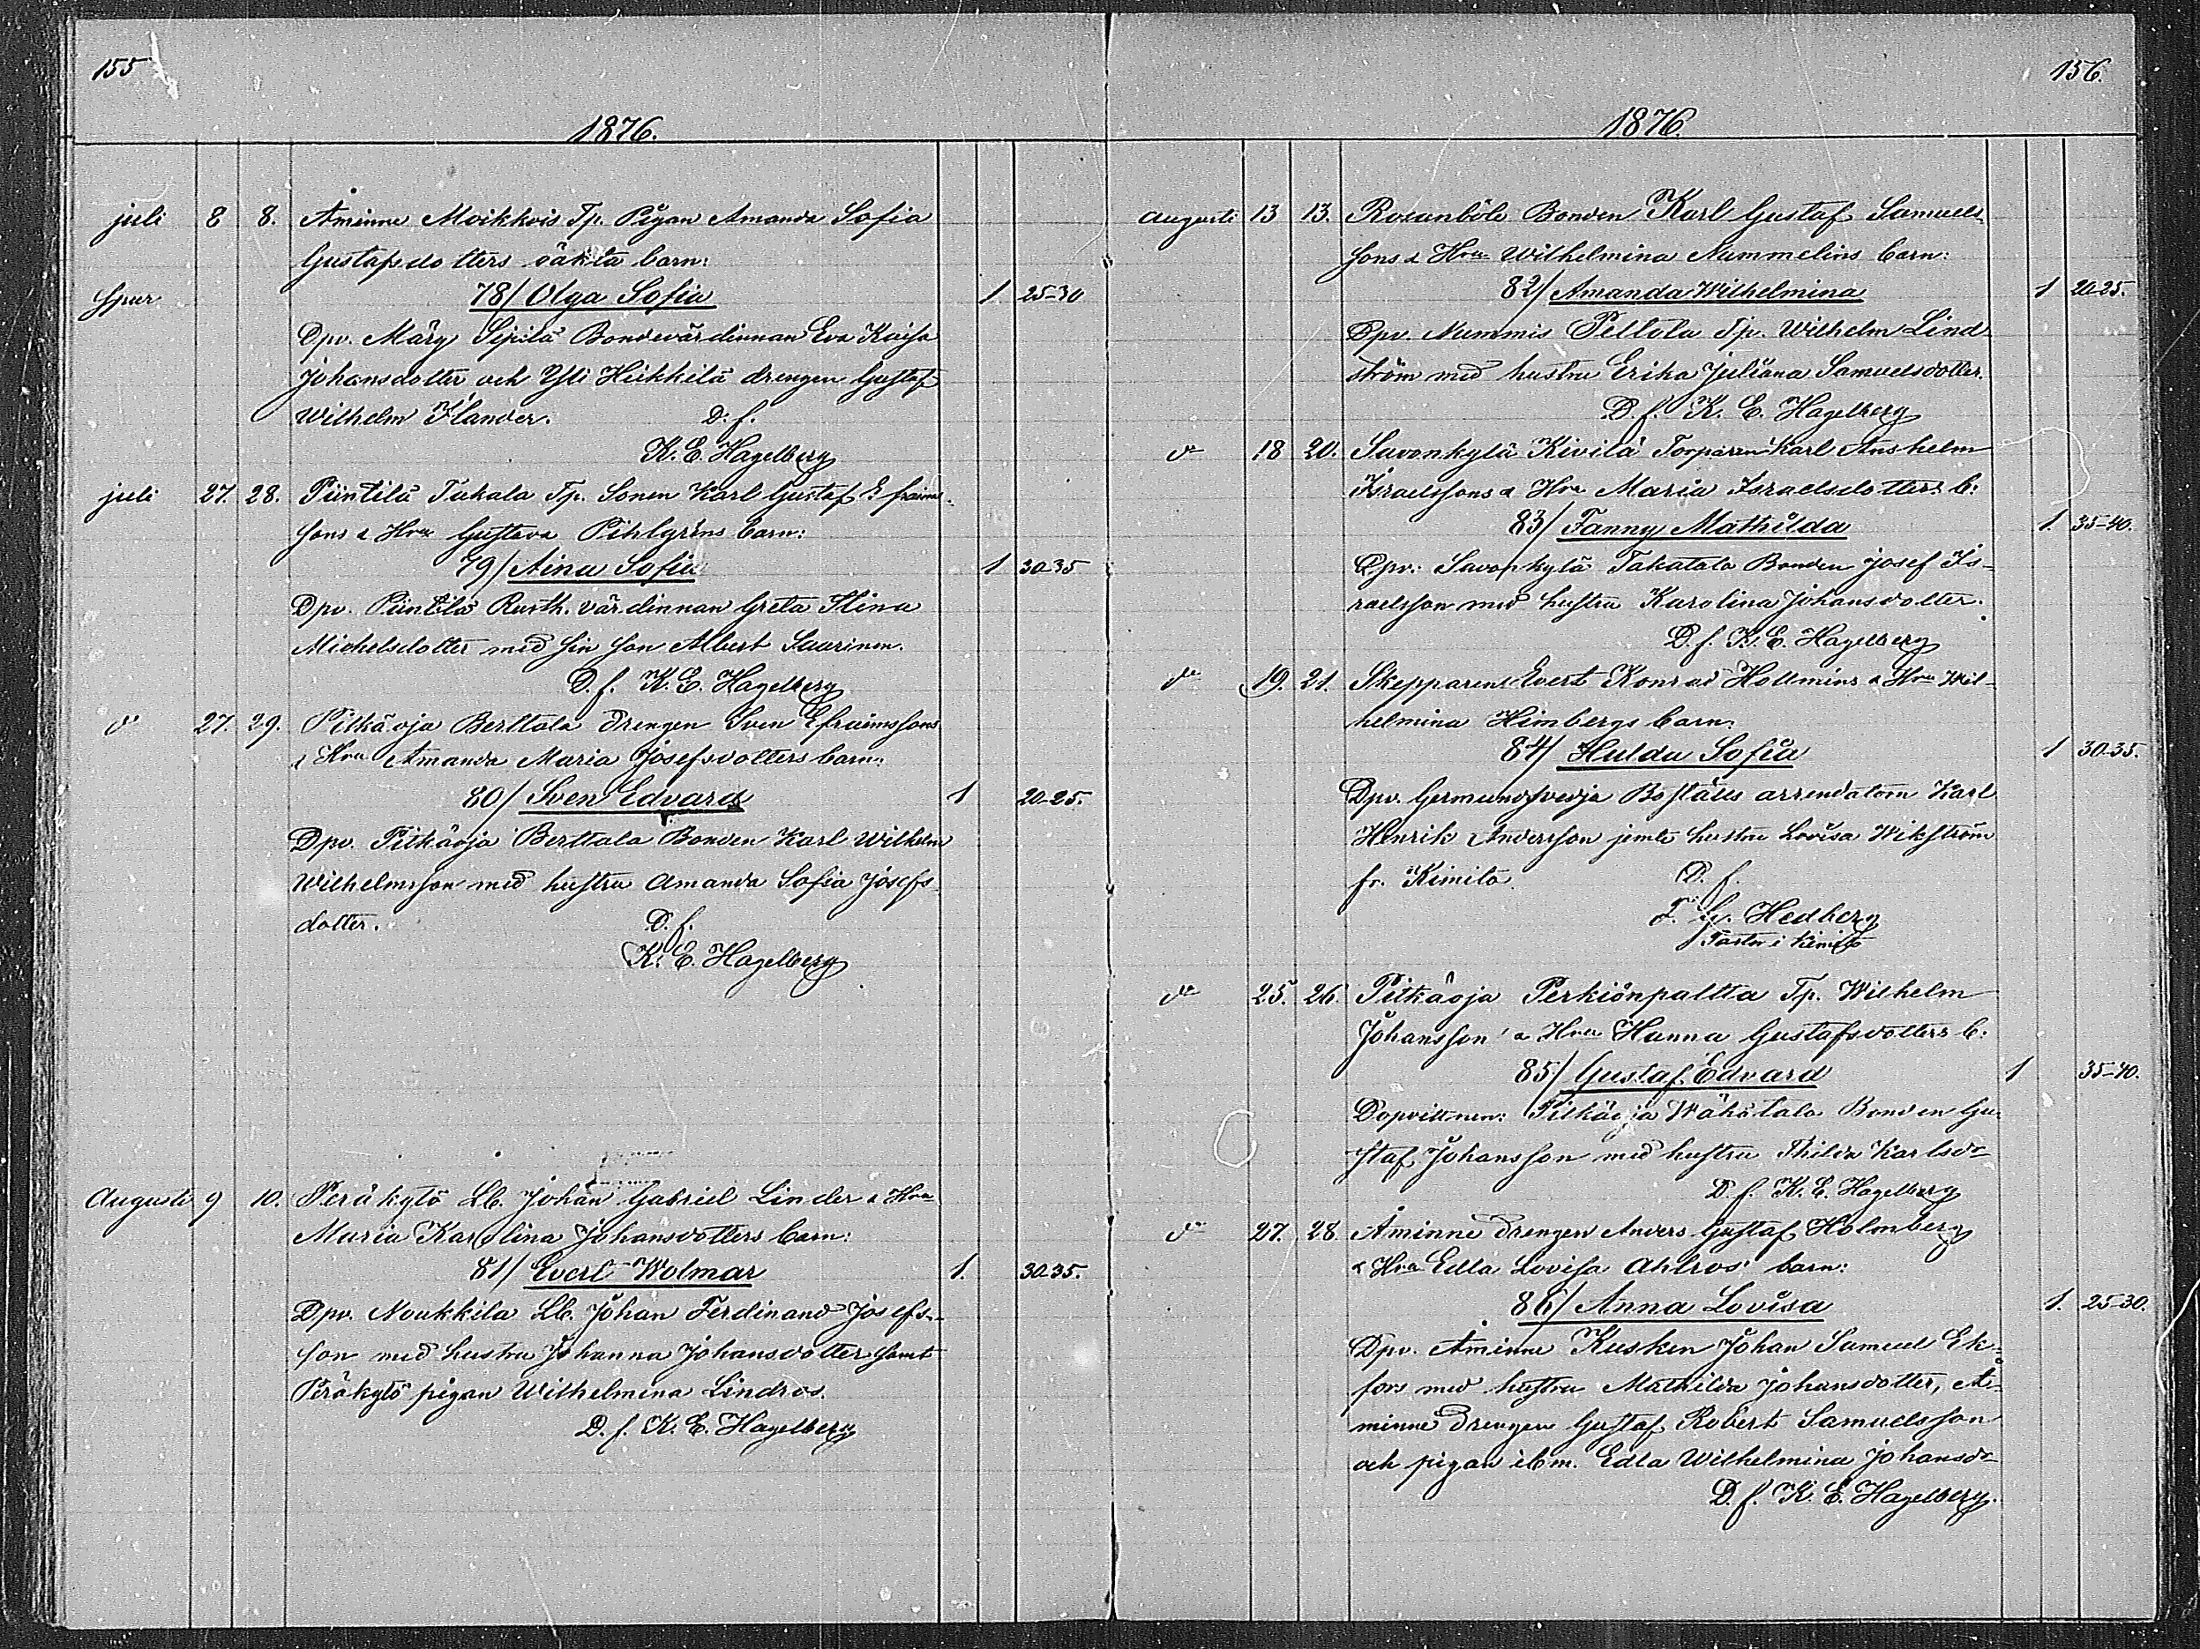 155
1876.
juli 8 8. Åminne Moikkois Tp. Pigan Amanda Sofia
Gustafsdotters oäkta barn:
Spur 78/ Olga Sofia 1 25-30
Dpv. Märy Sipilä Bondevärdinnan Eva Kaisa
Johansdotter och Yli Heikkilä drengen Gustaf
Wilhelm Flander. D. f.
K. E. Hagelberg
juli 27. 28. Püntilä Tukala Tp. Sonen Karl Gustaf Efraims
sons & Hru Gustava Pihlgréns barn:
79/ Aina Sofia 1 30-35
Dpv. Püntilä Rusth. värdinnan Greta Stina
Michelsdotter med sin son Albert Saarinen.
D. f. K. E. Hagelberg
do 27. 29. Pitkäoja Berttala drengen Sven Efraimssons
& Hru Amanda Maria Josefsdotters barn:
80/ Sven Edvard 1 20-25.
Dpv. Pitkäoja Berttala Bonden Karl Wilhelm
Wilhelmsson med hustru Amanda Sofia Josefs
dotter. D. f.
K. E. Hagelberg
Augusti 9 10. Peräkytö Lb. Johan Gabriel Linder & Hru
Maria Karolina Johansdotters barn:
81/ Evert Wolmar 1. 30-35.
Dpv. Noukkila Lb. Johan Ferdinand Josefs-
son med hustru Johanna Johansdotter samt
Peräkytö pigan Wilhelmina Lindros.
D. f. K. E. Hagelberg
156.
1876.
augusti 13 13. Rosanböle Bonden Karl Gustaf Samuels
sons & Hru Wilhelmina Nummelins barn:
82/ Amanda Wilhelmina 1 20-25.
Dpv. Nummis Peltola Tp. Wilhelm Lind
ström med hustru Erika Juliana Samuelsdotter.
D. f. K. E. Hagelberg
do 18 20. Savonkylä Kivilä Torparen Karl Anshelm
Israelssons & Hru Maria Israelsdotters b:
83/ Fanny Mathilda 1. 35-40.
Dpv. Savonkylä Takatalo Bonden Josef Is-
raelsson med hustru Karolina Johansdotter.
D. f. K. E. Hagelberg
do 19. 21. Skepparens Evert Konrad Hollmins & Hru Wil-
helmina Himbergs barn:
84/ Hulda Sofia 1 30-35.
Dpv. Germundsvedja Boställs arrendatorn Karl
Henrik Andersson jemte hustru Lovisa Wikström
fr. Kimito. D. f.
F. G. Hedberg
Pastor i Kimito
do 25. 26. Pitkäoja Perkiönpaltta Tp. Wilhelm
Johansson & Hru Hanna Gustafsdotters b:
85/ Gustaf Edvard 1 35-40.
Dopvittnen: Pitkäoja Wähätalo Bonden Gu-
staf Johansson med hustru Thilda Karlsdr
D. f. K. E. Hagelberg
do 27. 28 Åminne drengen Anders Gustaf Holmberg
& Hru Edla Lovisa Ahlros' barn:
86/ Anna Lovisa 1. 25-30.
Dpv. Åminne Kusken Johan Samuel Ek-
fors med hustru Mathilda Johansdotter, Å-
minne drengen Gustaf Robert Samuelsson
och pigan ibm. Edla Wilhelmina Johansdr
D. f. K. E. Hagelberg.